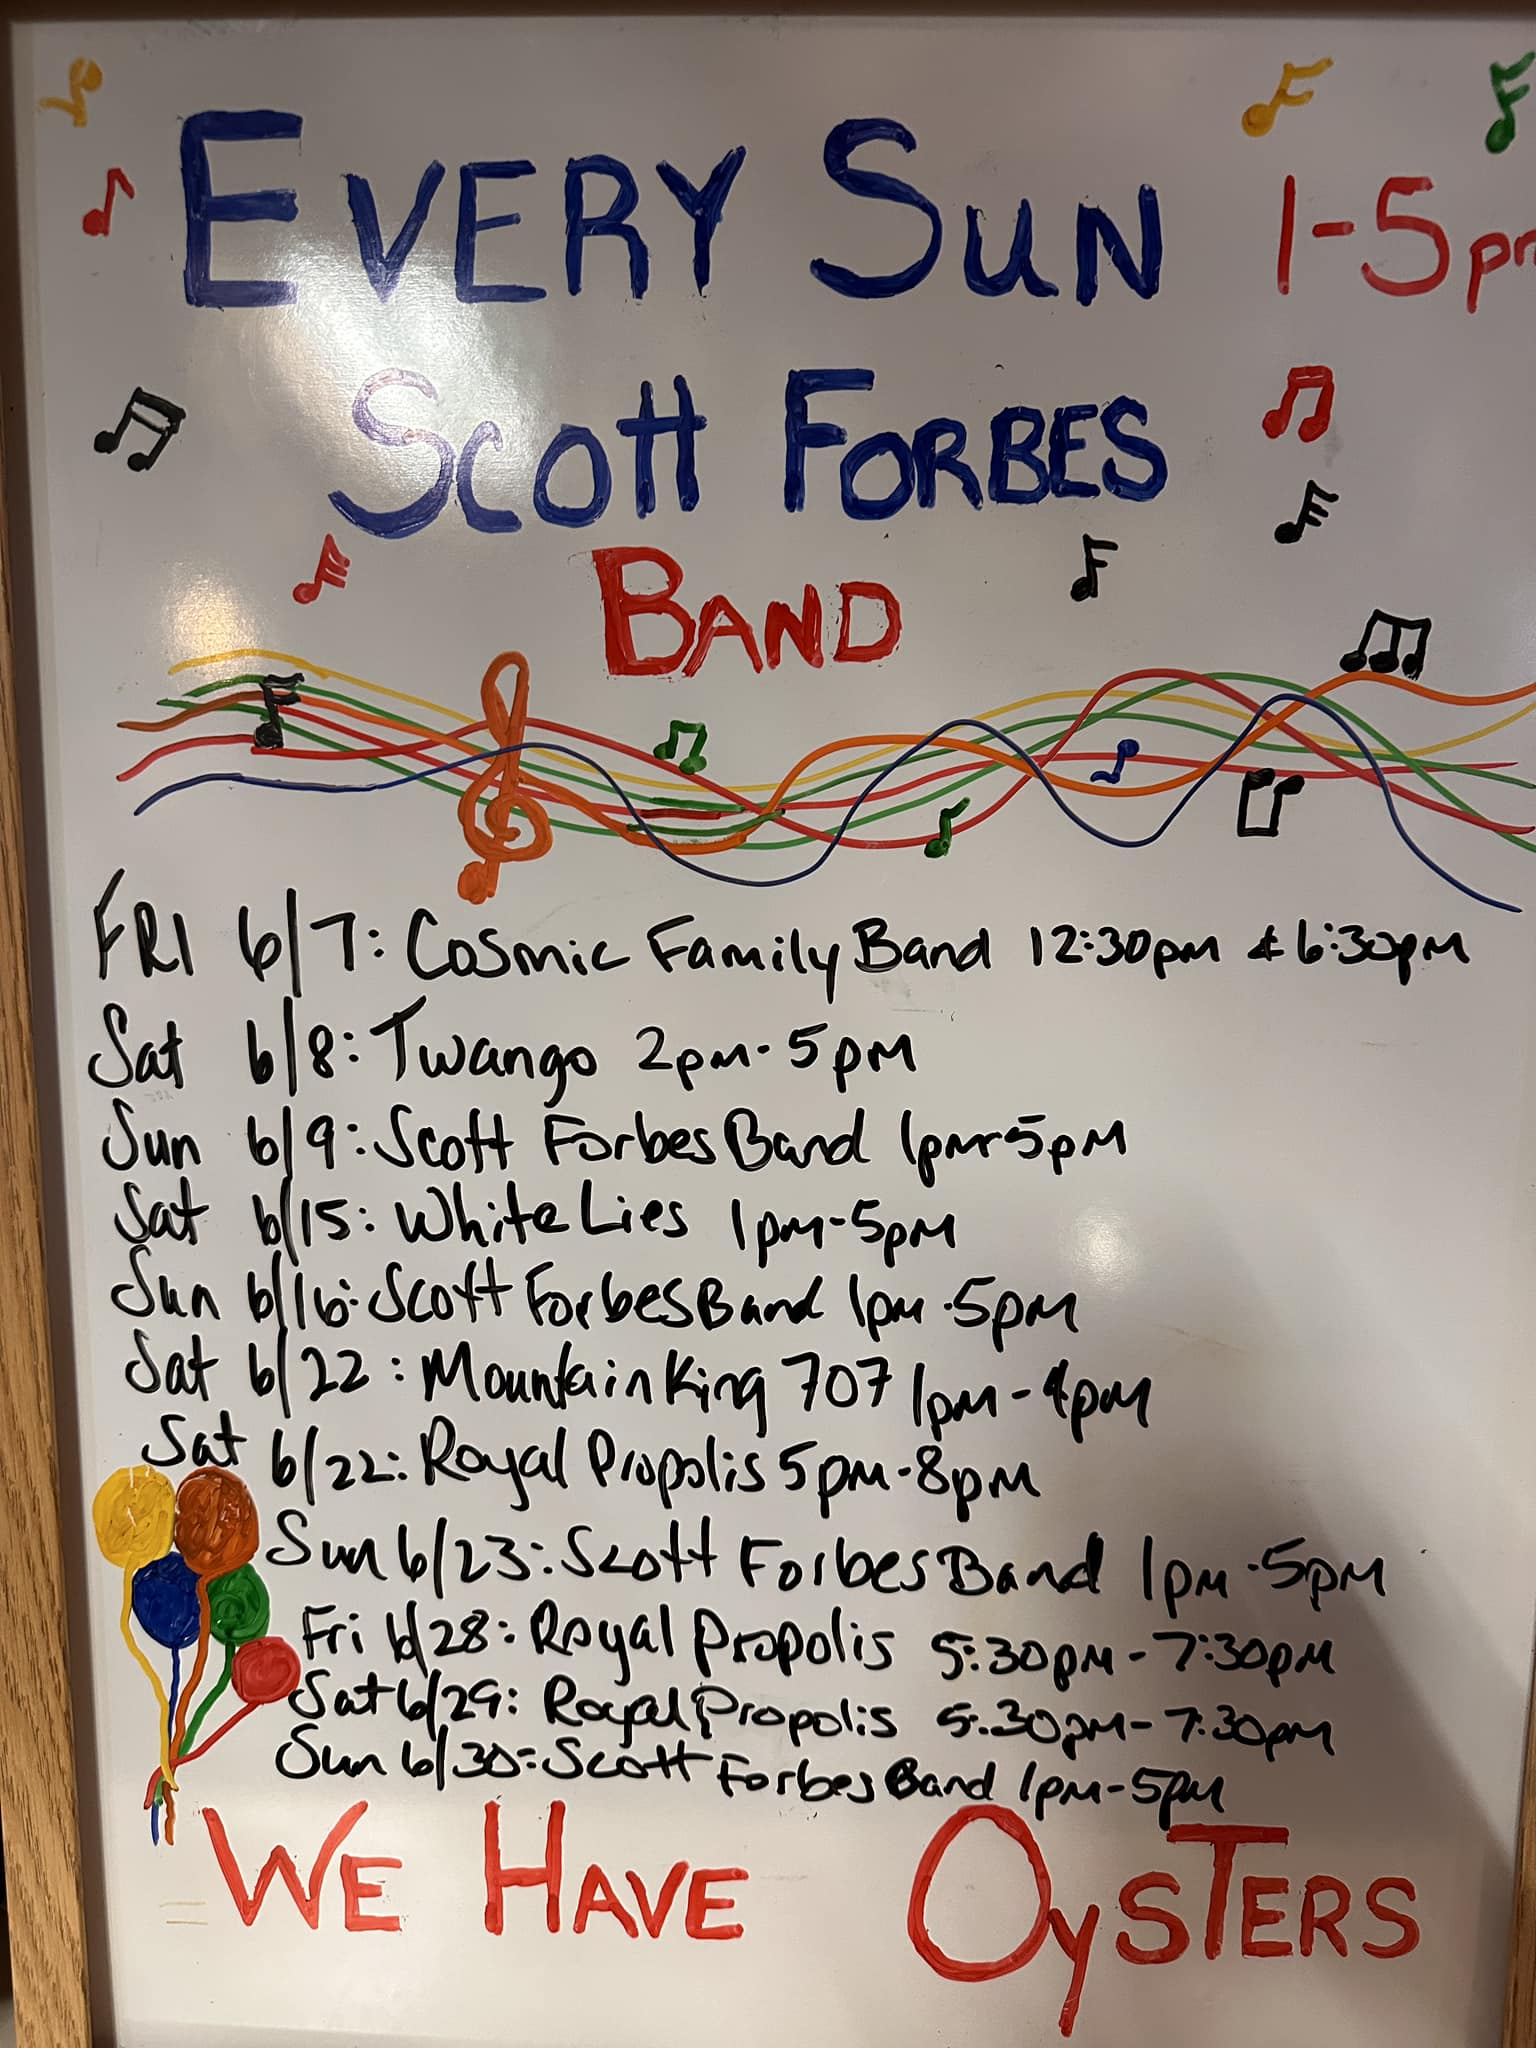 EVERY SUN 1-5pm
SCOTT FORBES
BAND
FRI 6/7: Cosmic Family Band 12:30pm & 6:30pm
Sat 6/8: Twango 2pm-5pm
Sun 6/9: Scott Forbes Band 1pm-5pm
Sat 6/15: White Lies 1pm-5pm
Sun 6/16: Scott Forbes Band 1pm-5pm
Sat 6/22: Mountain King 707 1pm-4pm
Sat 6/22: Royal Propolis 5pm-8pm
Sun 6/23: Scott Forbes Band 1pm-5pm
Fri 6/28: Royal Propolis 5:30pm-7:30pm
Sat 6/29: Royal Propolis 5:30pm-7:30pm
Sun 6/30: Scott Forbes Band 1pm-5pm
WE HAVE OYSTERS